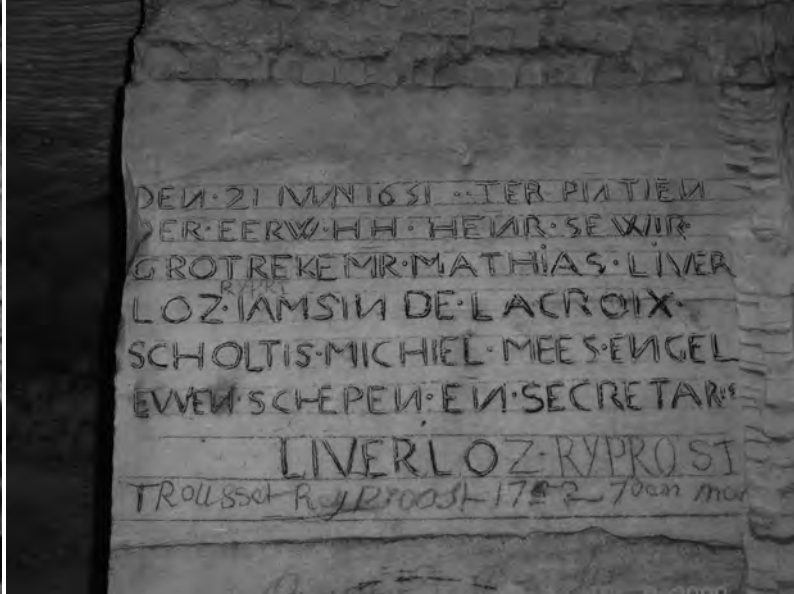 DEN·21 IVVN 1651 ··TER PINTIEN
DER·EERW·H H·HEINR·SEWIR
GROTREKEMR·MATHIAS·LIVER
RYPRS
LOZ·IAMSIN DE·LACROIX·
SCHOLTIS·MICHIEL·MEES·ENGEL
EVVEN·SCHEPEN·EN·SECRETARS
LIVERLOZ·RYPROST
TROUSSet RyPROOSt 1752